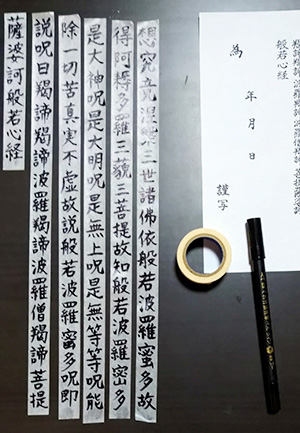 菩提薩婆訶
般若心経
為
年 月 日
謹写
想究竟涅槃三世諸佛依般若波羅蜜多故
得阿耨多羅三藐三菩提故知般若波羅密多
是大神呪是大明呪是無上呪是無等等呪能
除一切苦真実不虚故説般若波羅蜜多呪即
説呪曰羯諦羯諦波羅羯諦波羅僧羯諦菩提
薩婆訶般若心経